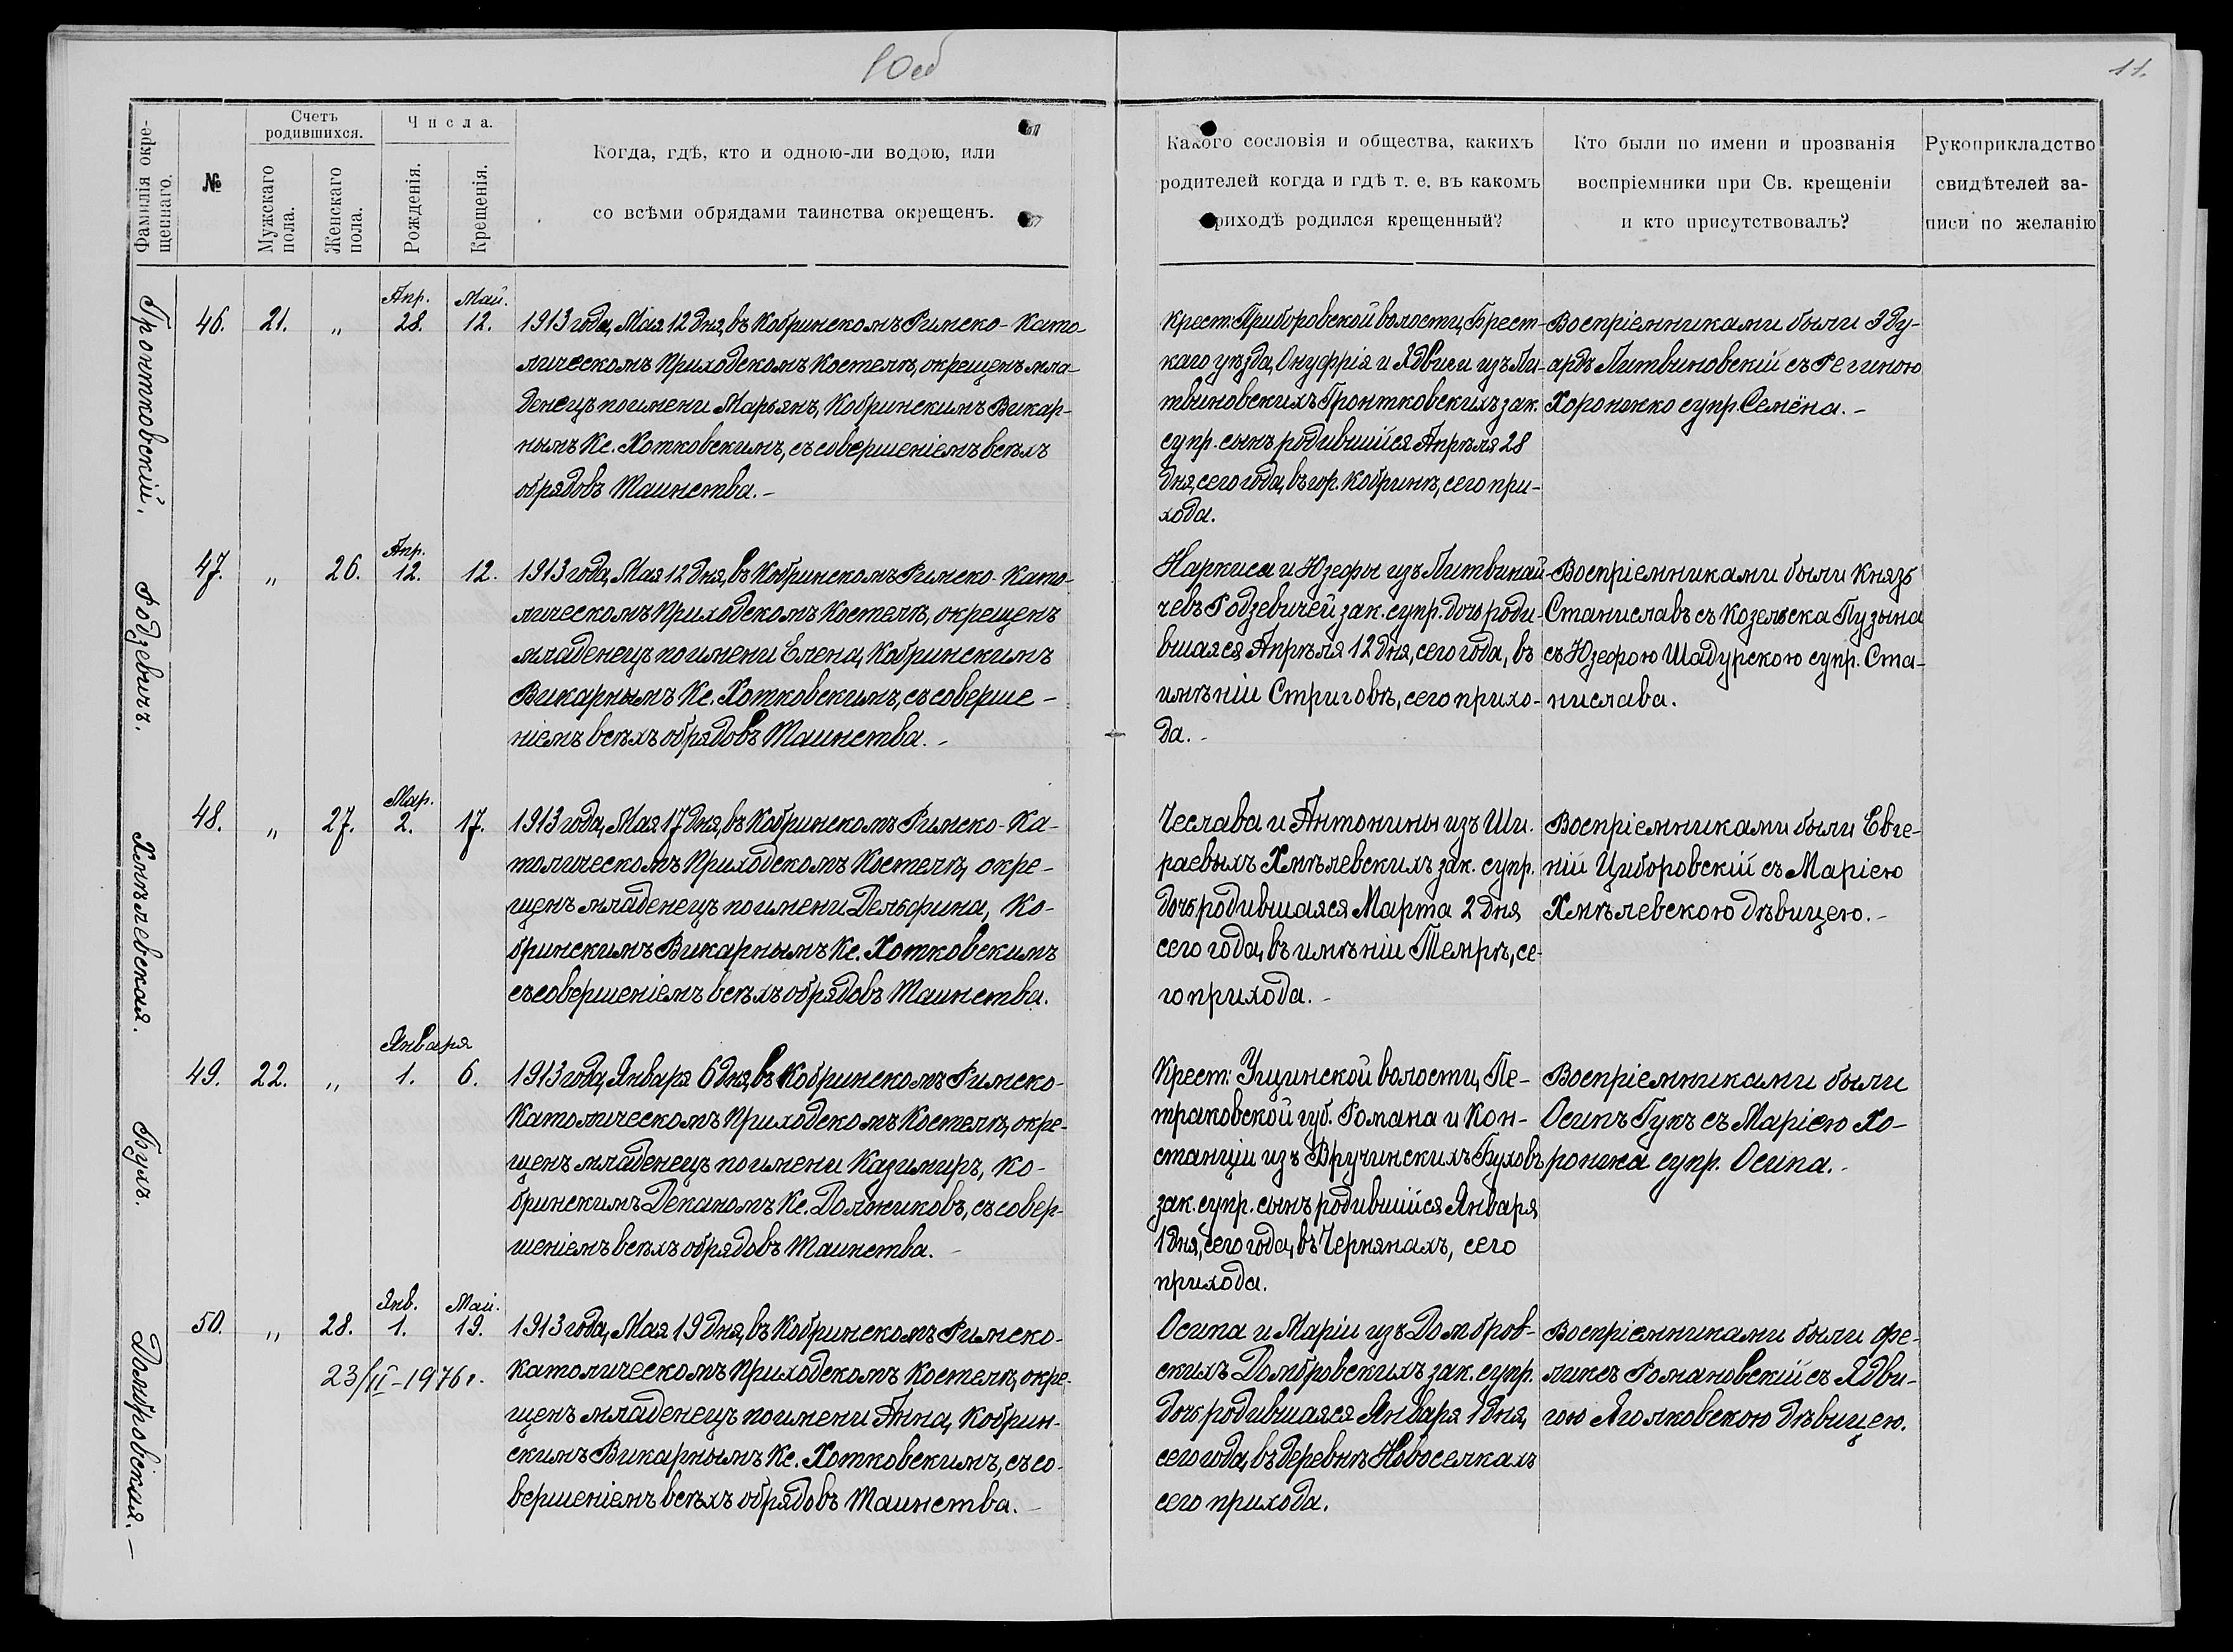 10об
11.
Фамилія окре-
щеннаго.
№
Счетъ
родившихся.
Мужскаго
пола.
Женскаго
пола.
Числа.
Рожденія.
Крещенія.
Когда, гдѣ, кто и одною-ли водою, или
со всѣми обрядами таинства окрещенъ.
Какого сословія и общества, какихъ
родителей когда и гдѣ т. е. въ какомъ
приходѣ родился крещенный?
Кто были по имени и прозванія
воспріемники при Св. крещеніи
и кто присутствовалъ?
Рукоприкладство
свидѣтелей за-
писи по желанію
Гронтковскій.
46. 21. „ Апр. 28. Май. 12.
1913 года, Мая 12 дня, въ Кобринскомъ Римско-Като-
лическомъ Приходскомъ Костелѣ, окрещенъ мла-
денецъ по имени Марьянъ, Кобринскимъ Викар-
нымъ Кс. Хотковскимъ, съ совершеніемъ всѣхъ
обрядовъ Таинства.-
Крест: Приборовской волости, Брест-
каго уѣзда, Онуфрія и Ядвиги изъ Ли-
твиновскихъ Гронтковскихъ зак.
супр. сынъ родившійся Апрѣля 28
дня, сего года, въ гор. Кобринѣ, сего при-
хода.
Воспріемниками были Эду-
ардъ Литвиновскій съ Региною
Хоронжко супр. Семёна.-
Родзевичъ.
47. „ 26. Апр. 12. 12.
1913 года, Мая 12 дня, въ Кобринскомъ Римско-Като-
лическомъ Приходскомъ Костелѣ, окрещенъ
младенецъ по имени Елена, Кобринскимъ
Викарнымъ Кс. Хотковскимъ, съ соверше-
ніемъ всѣхъ обрядовъ Таинства.-
Наркиса и Юзефы изъ Литвинай-
чевъ Родзевичей зак. супр. дочь роди-
вшаяся Апрѣля 12 дня, сего года, въ
имѣніи Стриговѣ, сего прихо-
да.-
Воспріемниками были Князь
Станиславъ съ Козельска Пузына
съ Юзефою Шадурскою супр. Ста-
нислава.
Хмѣлевская.
48. „ 27. Мар. 2. 17.
1913 года, Мая 17 дня, въ Кобринскомъ Римско-Ка-
толическомъ Приходскомъ Костелѣ, окре-
щенъ младенецъ по имени Дельфина, Ко-
бринскимъ Викарнымъ Кс. Хотковскимъ
съ совершеніемъ всѣхъ обрядовъ Таинства.
Чеслава и Антонины изъ Ши-
раевыхъ Хмѣлевскихъ зак. супр.
дочь родившаяся Марта 2 дня
сего года, въ имѣніи Темрѣ, се-
го прихода.-
Воспріемниками были Евге-
ній Циборовскій съ Маріею
Хмѣлевскою дѣвицею.-
Бухъ.
49. 22. „ Января 1. 6.
1913 года, Января 6 дня, въ Кобринскомъ Римско-
Католическомъ Приходскомъ Костелѣ, окре-
щенъ младенецъ по имени Казимиръ, Ко-
бринскимъ Деканомъ Кс. Должиковъ, съ совер-
шеніемъ всѣхъ обрядовъ Таинства.-
Крест: Ущинской волости, Пе-
траковской губ. Романа и Кон-
станціи изъ Вручинскихъ Буховъ
зак. супр. сынъ родившійся Января
1 дня, сего года, въ Чернянахъ, сего
прихода.
Воспріемниками были
Осипъ Гукъ съ Маріею Хо-
ронжа супр. Осипа.-
Домбровская.-
50. „ 28. Янв. 1. Май. 19.
23/II-1976г.
1913 года, Мая 19 дня, въ Кобринскомъ Римско-
Католическомъ Приходскомъ Костелѣ, окре-
щенъ младенецъ по имени Анна, Кобрин-
скимъ Викарнымъ Кс. Хотковскимъ, съ со-
вершеніемъ всѣхъ обрядовъ Таинства.-
Осипа и Маріи изъ Домбров-
скихъ Домбровскихъ зак. супр.
дочь родившаяся Января 1 дня,
сего года, въ деревнѣ Новоселкахъ
сего прихода.
Воспріемниками были Фе-
ликсъ Романовскій съ Ядви-
гою Яголковскою дѣвицею.